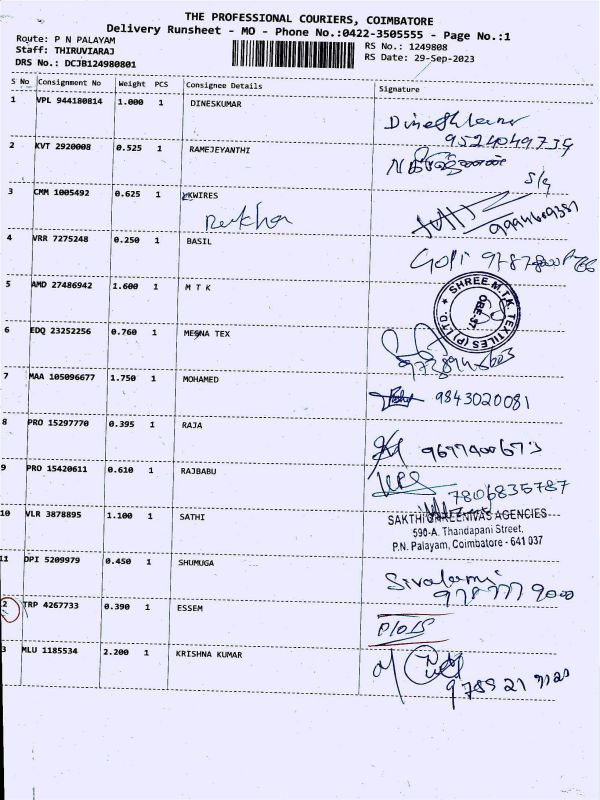 THE PROFESSIONAL COURIERS, COIMBATORE
Delivery Runsheet - MO - Phone No.:0422-3505555 - Page No.:1
Route: P N PALAYAM
RS No.: 1249808
Staff: THIRUVIARAJ
RS Date: 29-Sep-2023
DRS No.: DCJB124980801
S No Consignment No Weight PCS Consignee Details Signature
1 VPL 944180814 1.000 1 DINESKUMAR
Dineshkumar
9524049739
2 KVT 2920008 0.525 1 RAMEJEYANTHI
3 CMM 1005492 0.625 1 KWIRES
S/g
9994609381
4 VRR 7275248 0.250 1 BASIL
Gopi
5 AMD 27486942 1.600 1 M T K
SHREE M.T.K. TEXTILES (P) LTD.
CBE-37
6 EDQ 23252256 0.760 1 MEGNA TEX
7 MAA 105096677 1.750 1 MOHAMED
9843020081
8 PRO 15297770 0.395 1 RAJA
9697900673
9 PRO 15420611 0.610 1 RAJBABU
7806835787
10 VLR 3878895 1.100 1 SATHI
SAKTHI SREENIVAS AGENCIES
590-A. Thandapani Street,
P.N. Palayam, Coimbatore - 641 037
11 DPI 5209979 0.450 1 SHUMUGA
2 TRP 4267733 0.390 1 ESSEM
3 MLU 1185534 2.200 1 KRISHNA KUMAR